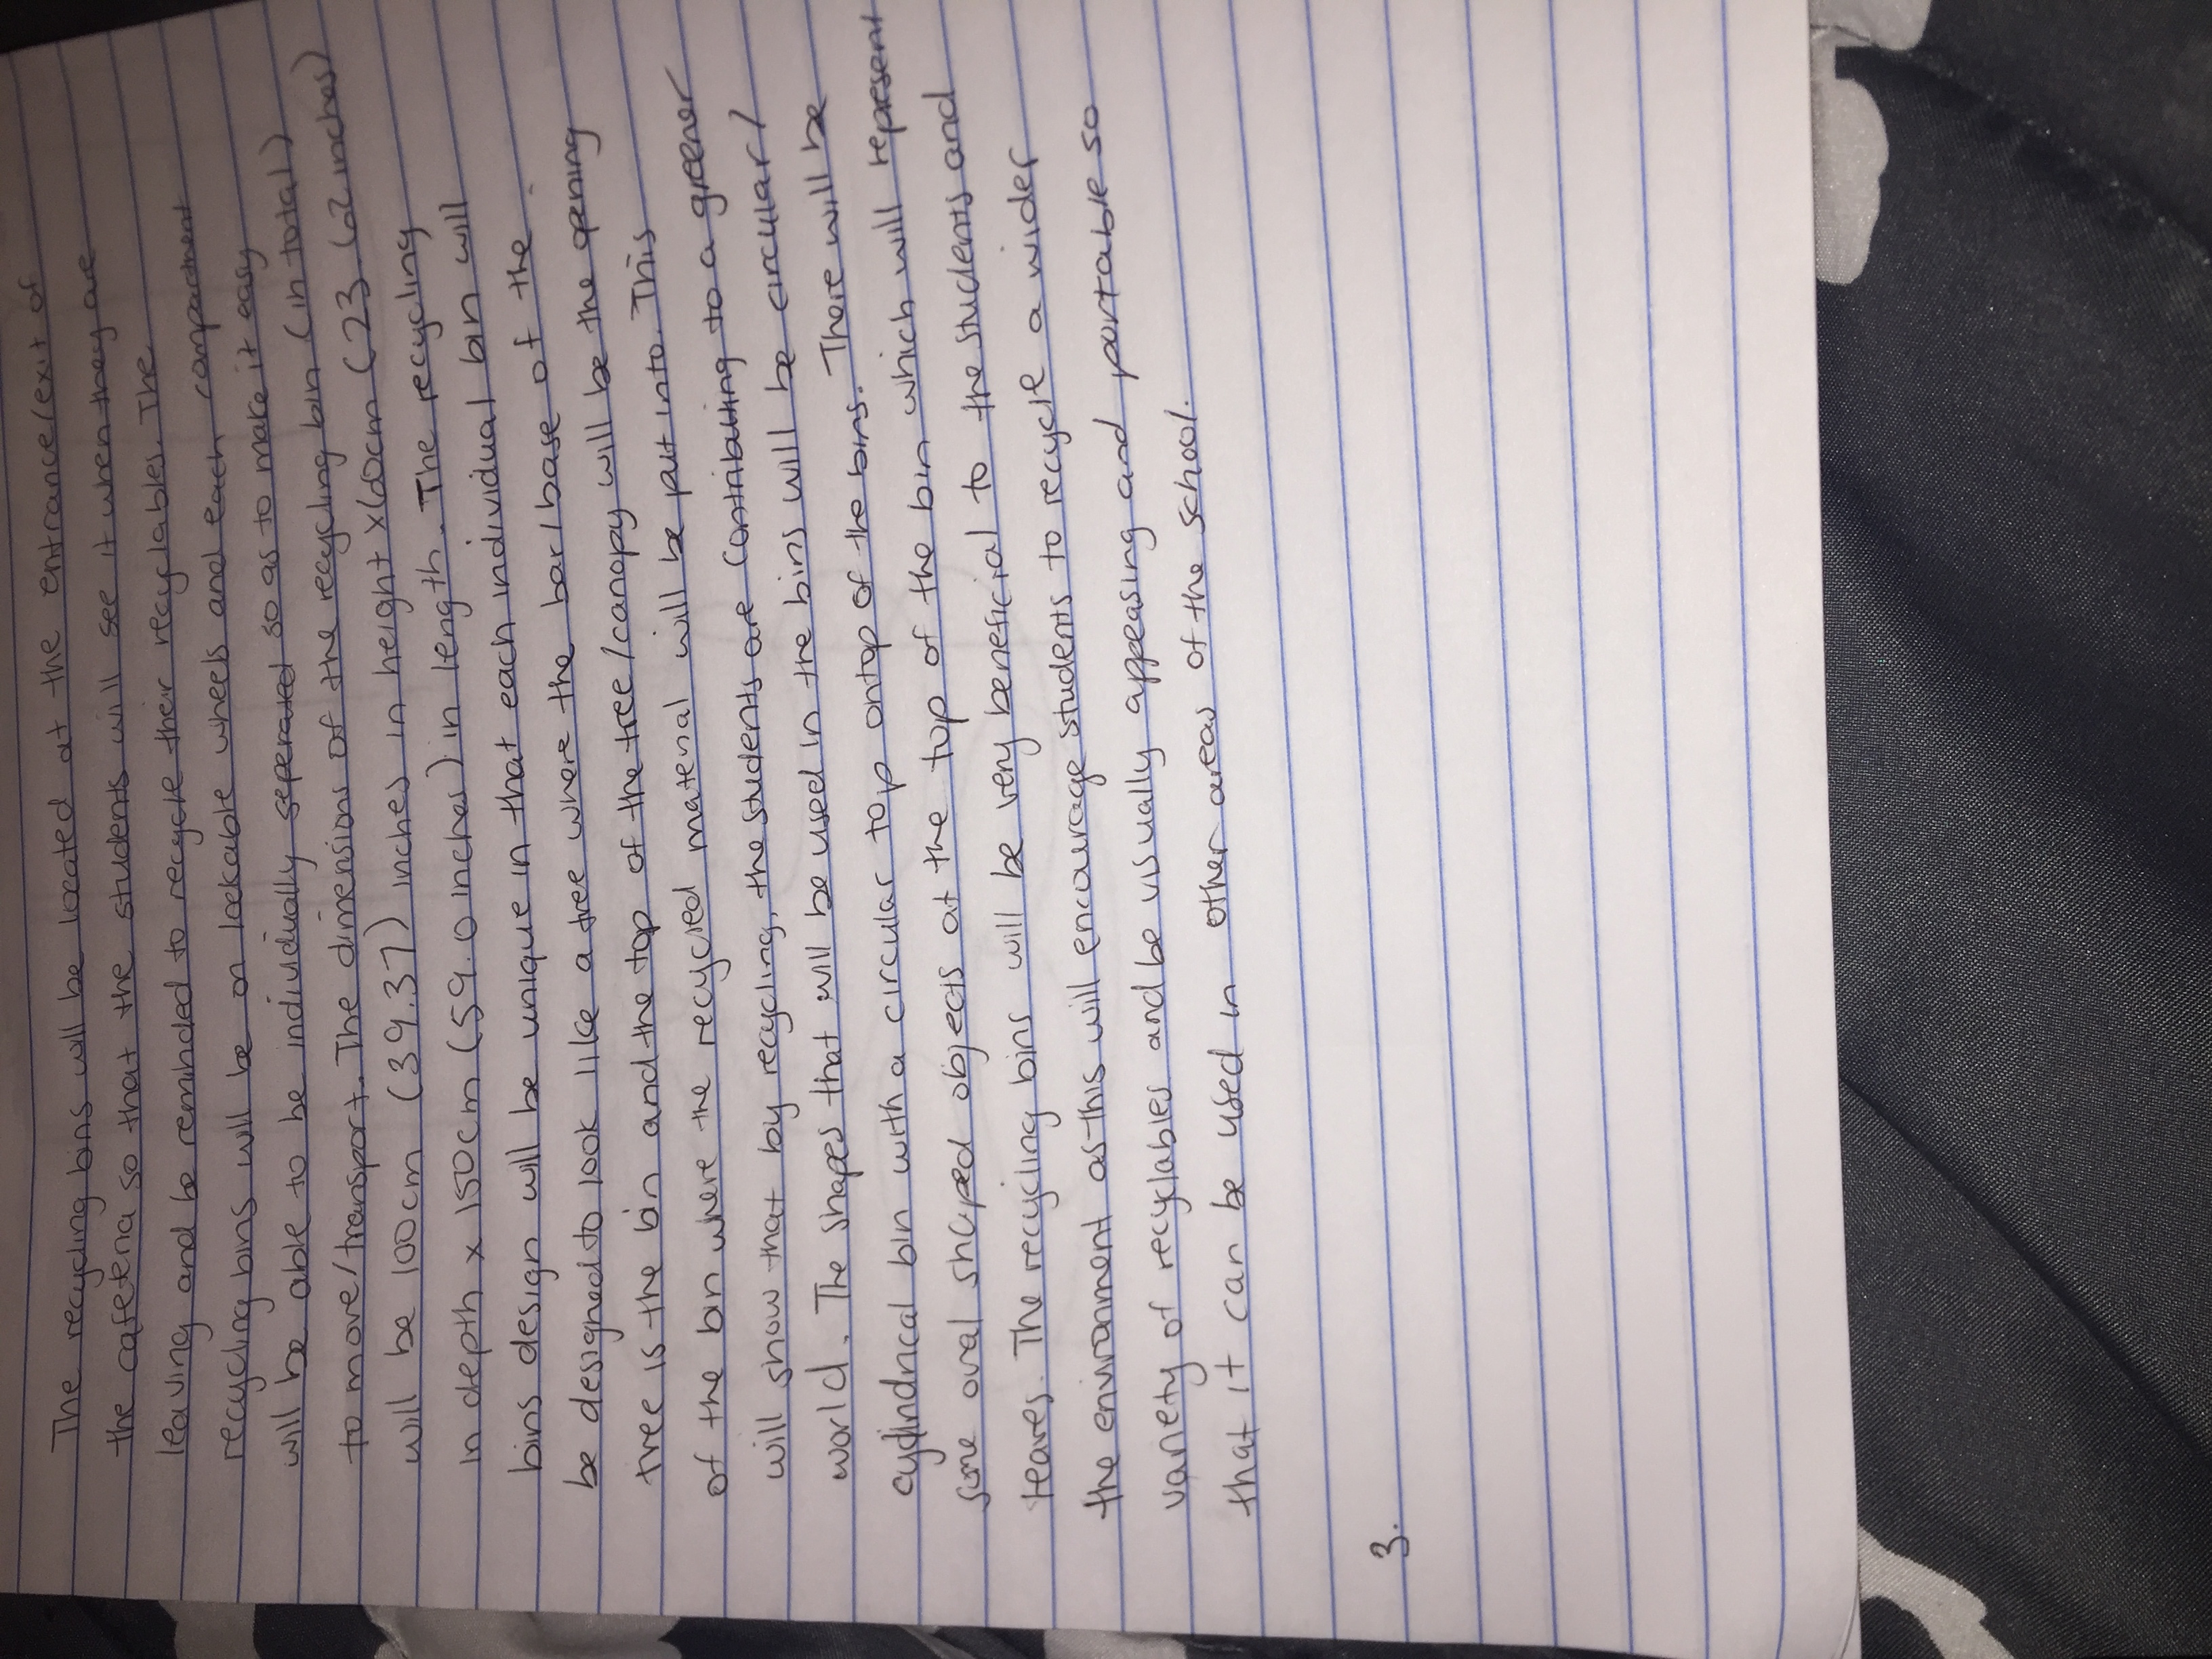 The recycling bins will be located at the entrance/exit of
the cafeteria so that the students will see it when they are
leaving and be reminded to recycle their recyclables. The
recycling bins will be on lockable wheels and each compactment
will be able to be individually seperated so as to make it easy
to move/transport. The dimensions of the recycling bin (in total)
will be 100cm (39.37) inches in height x 60cm (23.62 inches)
in depth x 150cm (59.0 inches) in length. The recycling
bins design will be unique in that each individual bin will
be designed to look like a tree where the bar/base of the
tree is the bin and the top of the tree/canopy will be the opening
of the bin where the recycled material will be put into. This
will show that by recycling, the students are contributing to a greener
world. The shapes that will be used in the bins will be circular/
cylindrical bin with a circular top ontop of the bins. There will be
some oval shaped objects at the top of the bin which will represent
leaves. The recycling bins will be very beneficial to the students and
the environment as this will encourage students to recycle a wider
variety of recyclables and be visually appeasing and portable so
that it can be used in other areas of the school.
3.